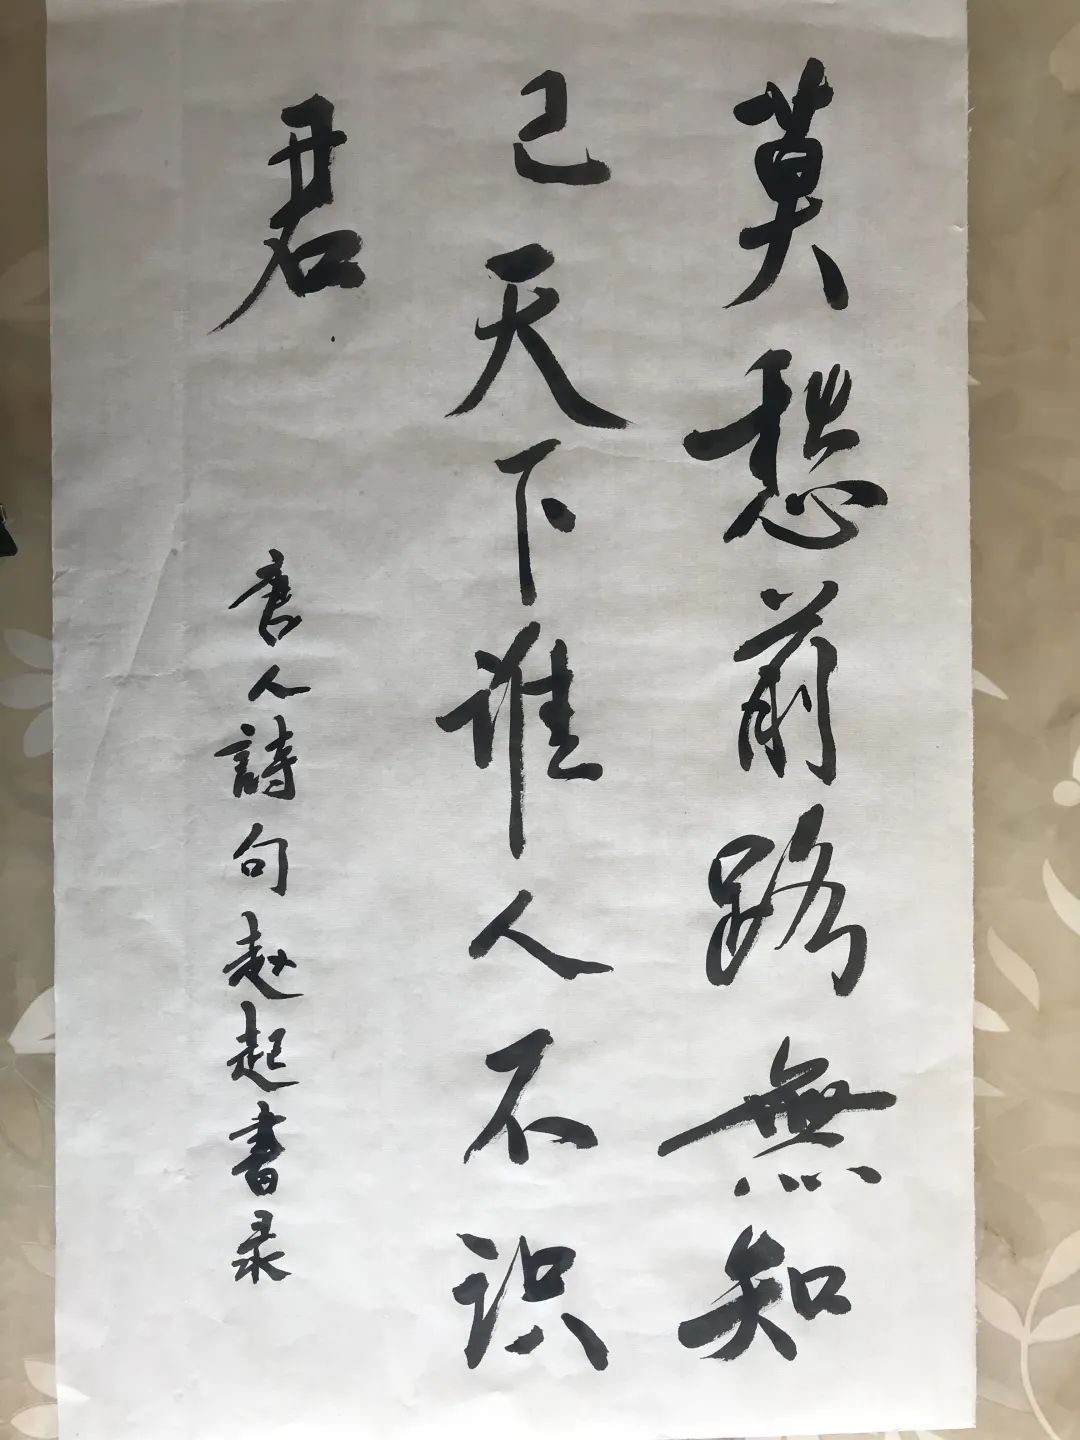 莫愁前路無知
己天下谁人不识
君
唐人詩句赵起書录